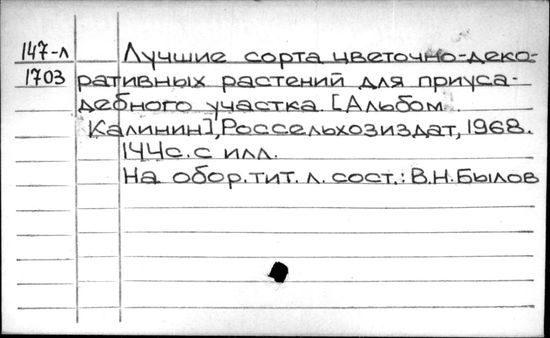 147-л Лучшие сорта цветочно-деко-
1703 ративных растений для приуса-
дебного участка. [Альбом.
Калинин], Россельхозиздат, 1968.
144с. с илл.
На обор. тит. л. сост.: В.Н. Былов